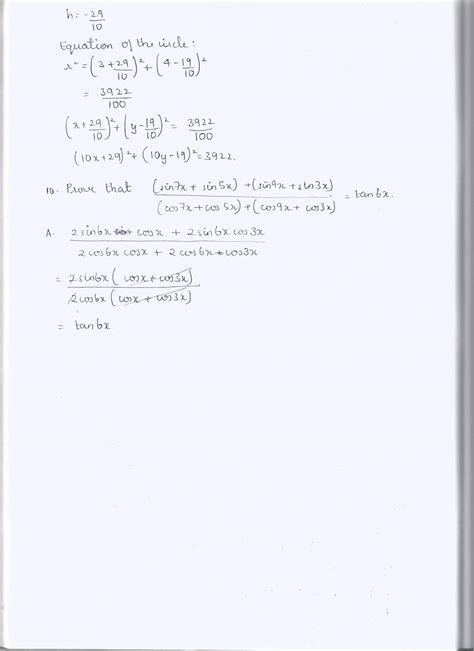 h = -29/10
Equation of the circle:
r² = (3+29/10)² + (4-19/10)²
= 3922/100
(x+29/10)² + (y-19/10)² = 3922/100
(10x+29)² + (10y-19)² = 3922.
10. Prove that (sin7x + sin5x) + (sin9x + sin3x) / (cos7x + cos5x) + (cos9x + cos3x) = tan6x.
A. 2sin6x cosx + 2sin6x cos3x / 2cos6x cosx + 2cos6x cos3x
= 2sin6x (cosx + cos3x) / 2cos6x (cosx + cos3x)
= tan6x